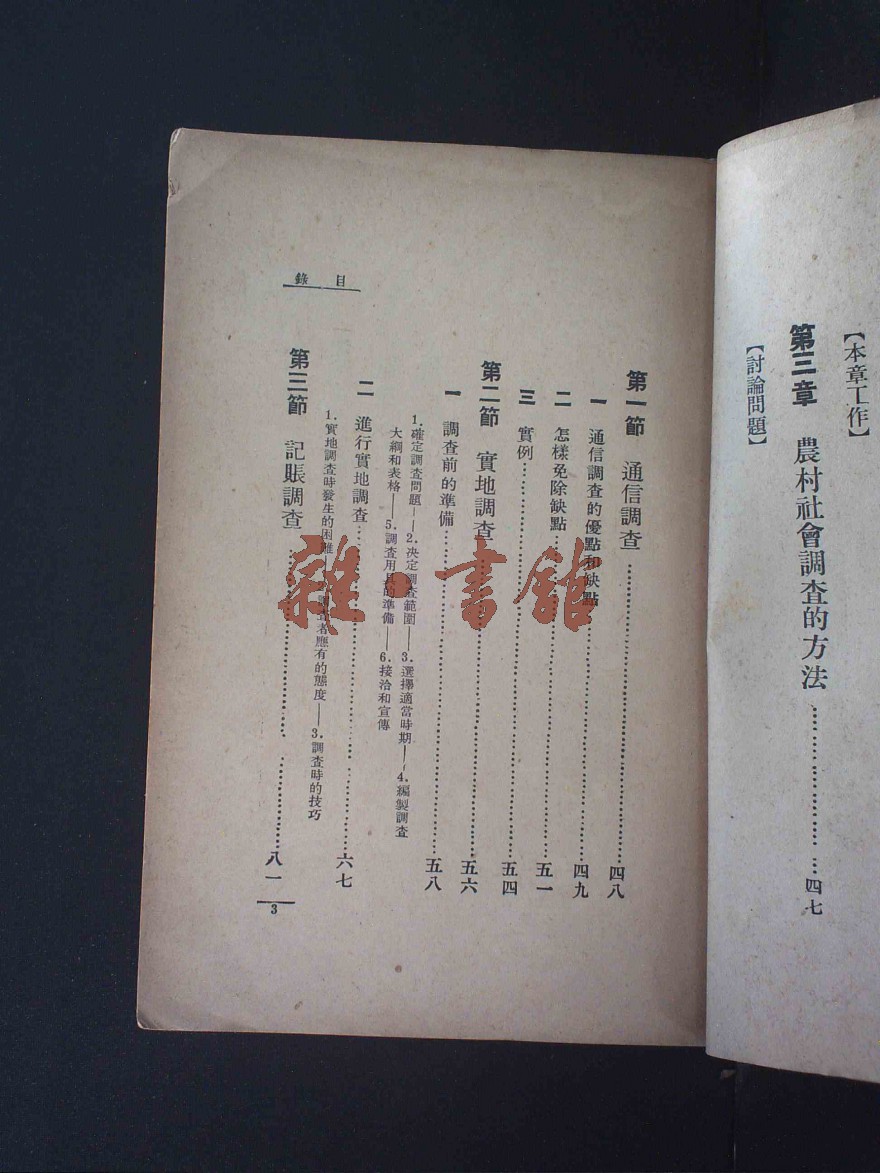 【本章工作】
第三章　農村社會調查的方法……………………四七
【討論問題】
目錄
第一節　通信調查……………………四八
一　通信調查的優點和缺點……………………四九
二　怎樣免除缺點……………………五一
三　實例……………………五四
第二節　實地調查……………………五六
一　調查前的準備……………………五八
1.確定調查問題——2.決定調查範圍——3.選擇適當時期——4.編製調查
大綱和表格——5.調查用具的準備——6.接洽和宣傳
二　進行實地調查……………………六七
1.實地調查時發生的困難——調查者應有的態度——3.調查時的技巧
第三節　記賬調查……………………八一
3
雜·書館